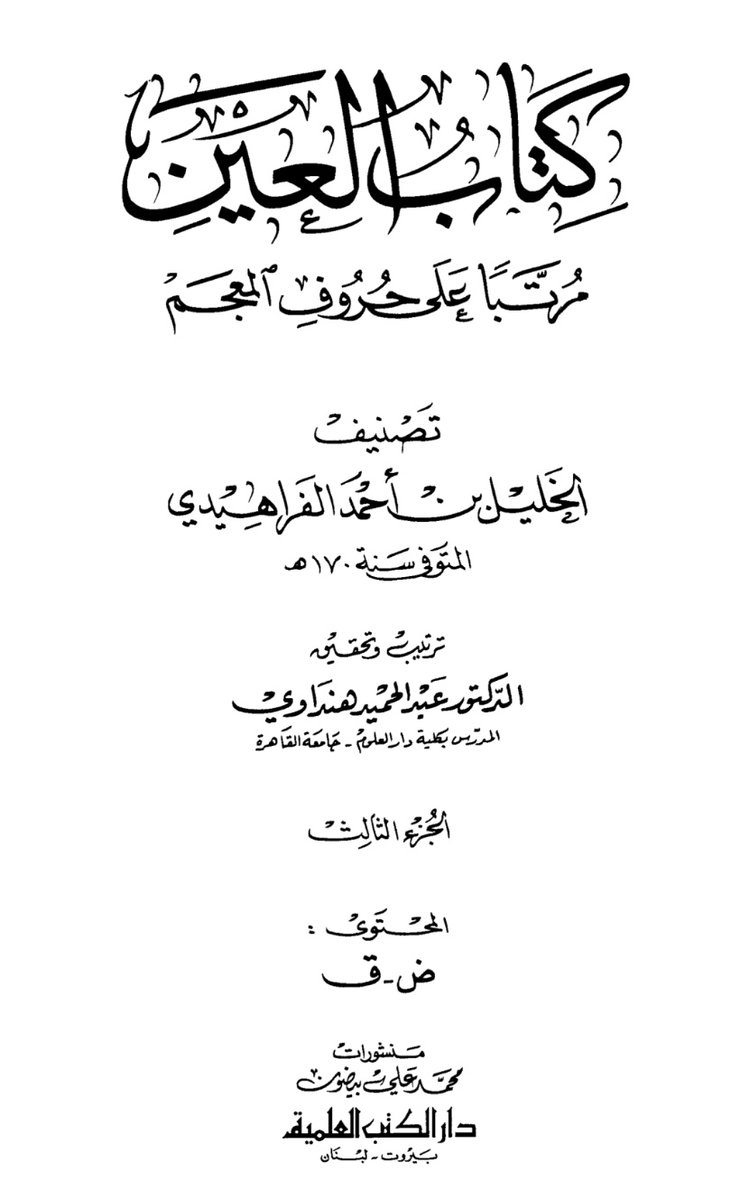 كِتَابُ العَيْنِ
مُرَتَّبًا عَلَى حُرُوفِ المُعْجَمْ
تَصْنيف
الخَليْل بنْ أَحْمَدَ الفَراهِيْدي
المتَوَفى سَنَة ١٧٠هـ
ترتيب وتحقيق
الدّكتور عَبْد الحَميْد هنداوي
المدرّس بكلية دار العلوم - جَامعَة القاهرة
الجُزء الثالِث
المحْتَوىٰ :
ض - ق
مَنشورات
محمّد عَلي بيضون
دار الكتب العلمية
بَيروت - لبْنان